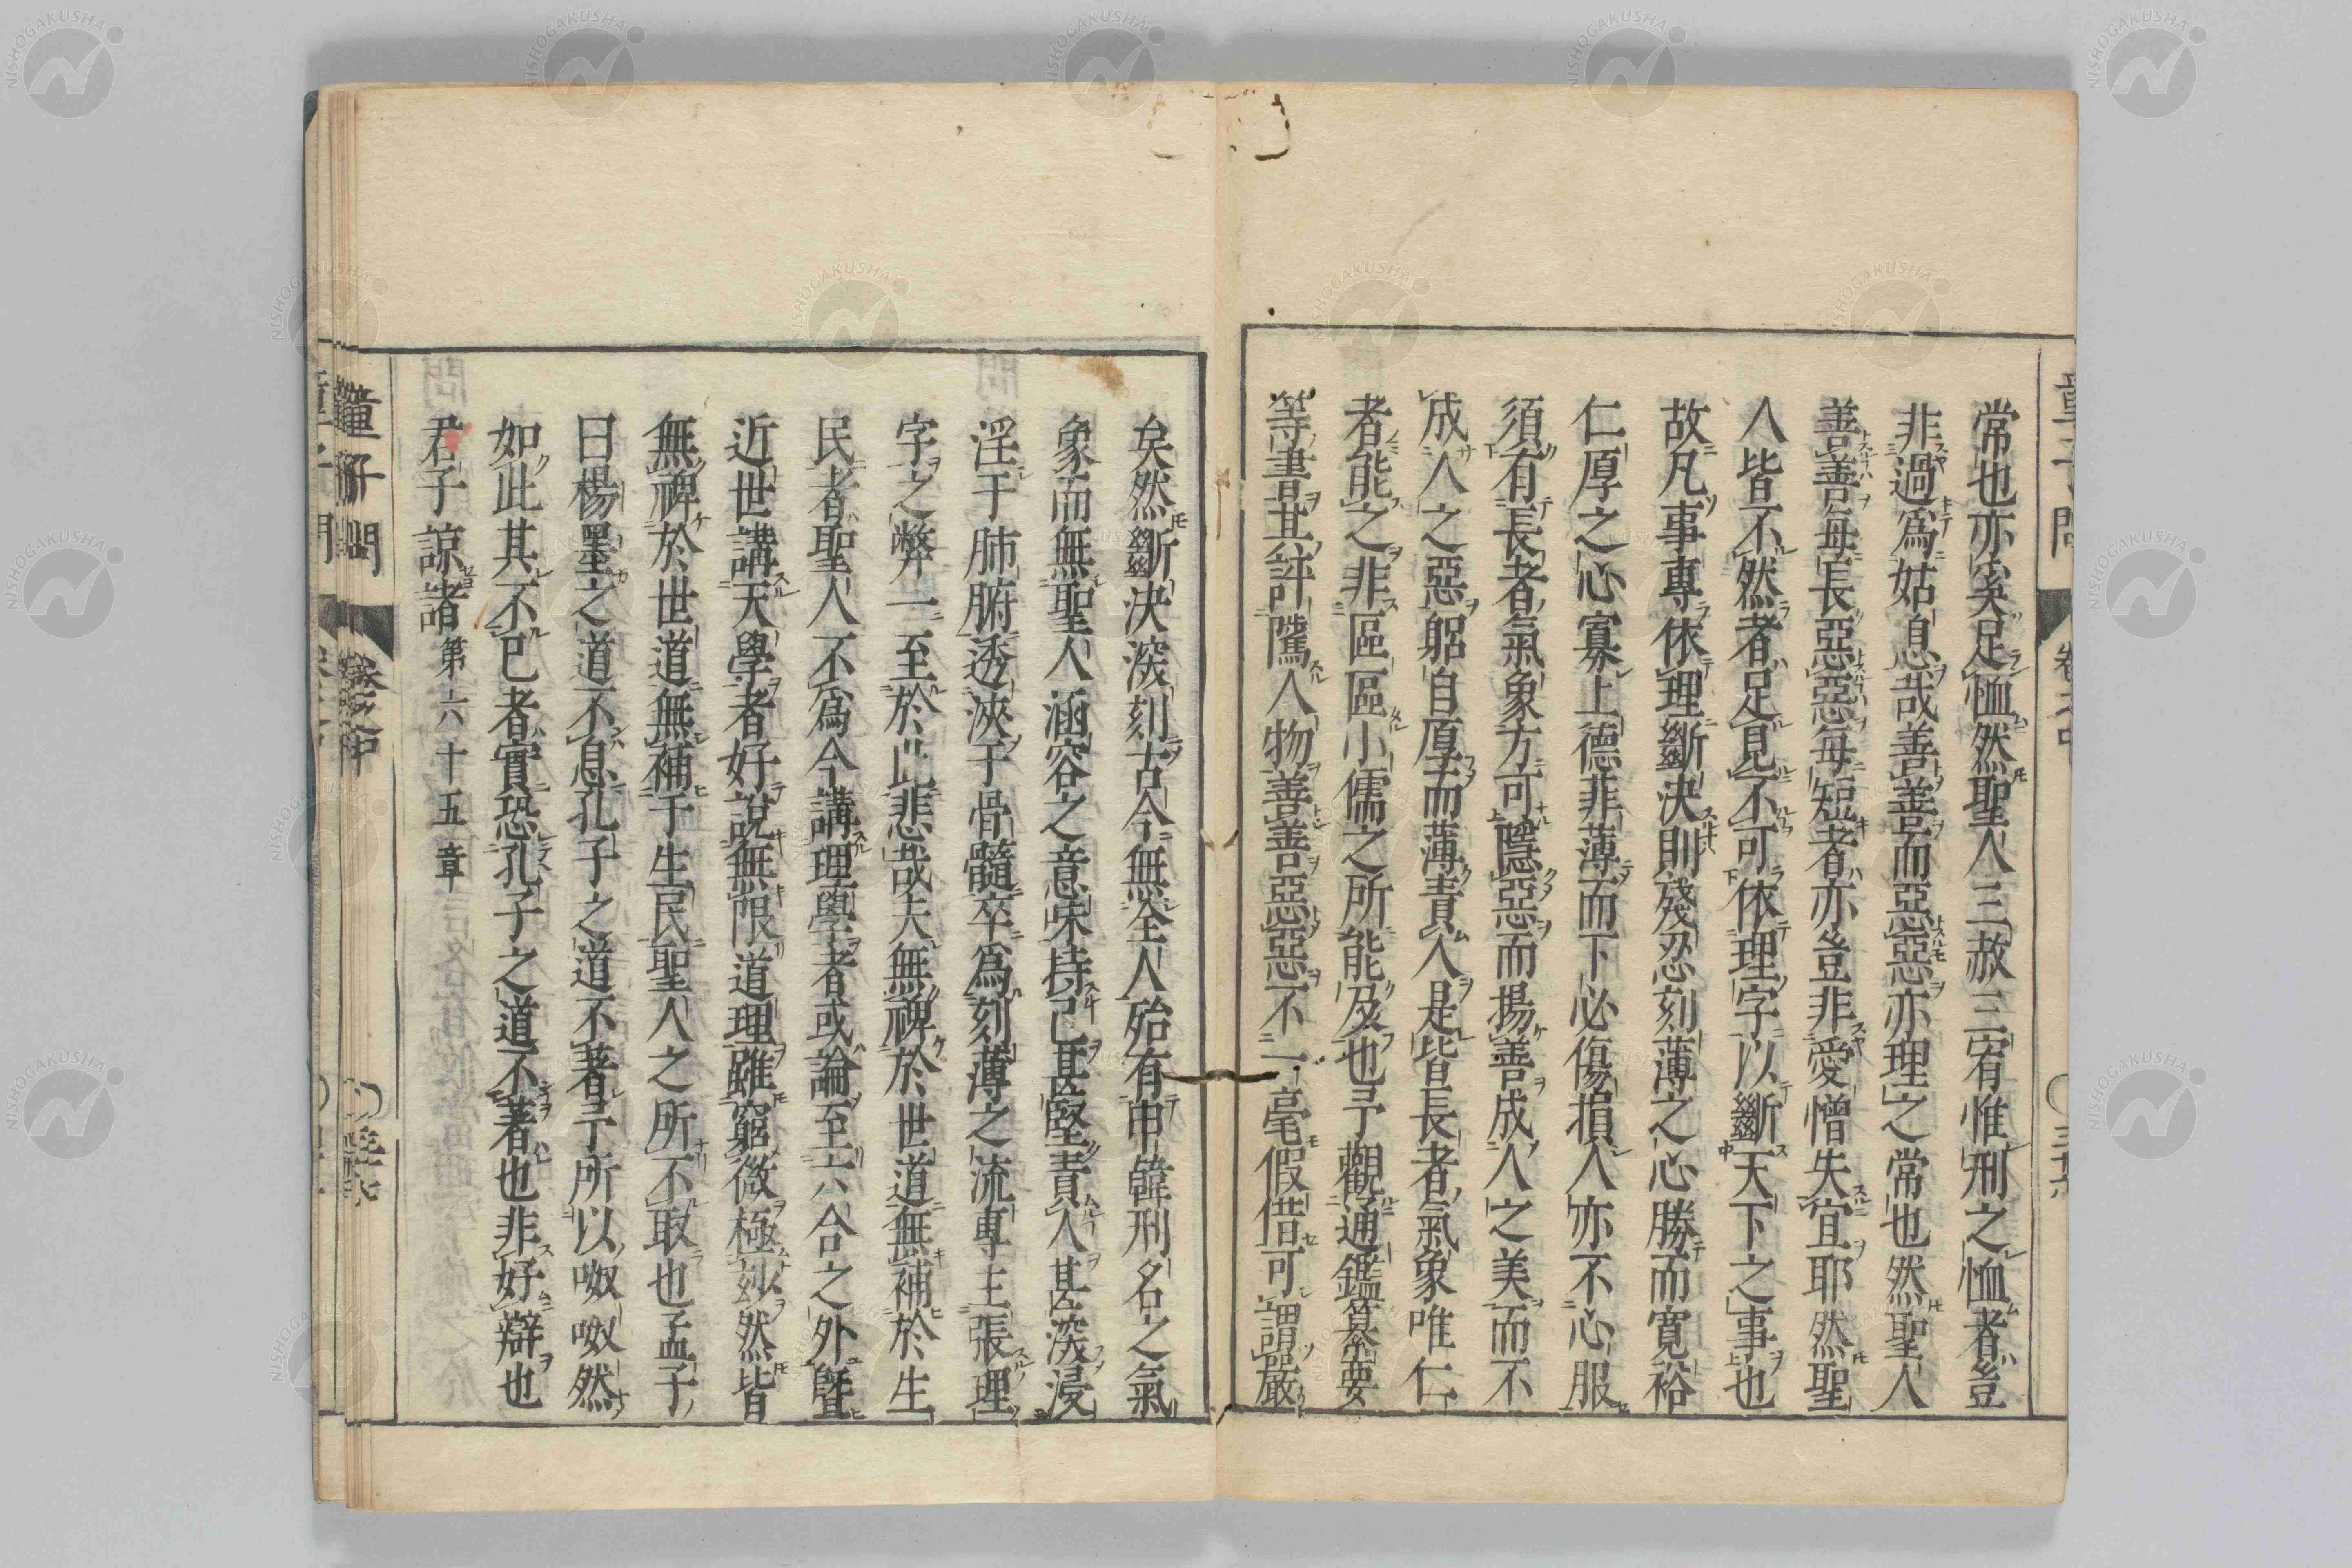 常也亦奚足恤然聖人三赦三宥惟刑之恤者豈
非過爲姑息哉善善而惡惡亦理之常也然聖人
善善每長惡惡每短者亦豈非愛憎失宜耶然聖
人皆不然者足見不可依理字以斷天下之事也
故凡事專依理斷決則殘忍刻薄之心勝而寬裕
仁厚之心寡上德菲薄而下必傷損人亦不心服
須有長者氣象方可隱惡而揚善成人之美而不
成人之惡躬自厚而薄責人是皆長者氣象唯仁
者能之非區區小儒之所能及也予觀通鑑纂要
等書其評隲人物善善惡惡不一毫假借可謂嚴
矣然斷決深刻古今無全人殆有申韓刑名之氣
象而無聖人涵容之意味持己甚堅責人甚深浸
淫于肺腑透浹于骨髓卒爲刻薄之流專主張理
字之弊一至於此悲哉夫無裨於世道無補於生
民者聖人不爲今講理學者或論至六合之外曁
近世講天學者好說無限道理雖窮微極玅然皆
無裨於世道無補于生民聖人之所不取也孟子
曰楊墨之道不息孔子之道不著予所以呶呶然
如此其不已者實恐孔子之道不著也非好辯也
君子諒諸第六十五章
童子問
卷之中
NISHOGAKUSHA